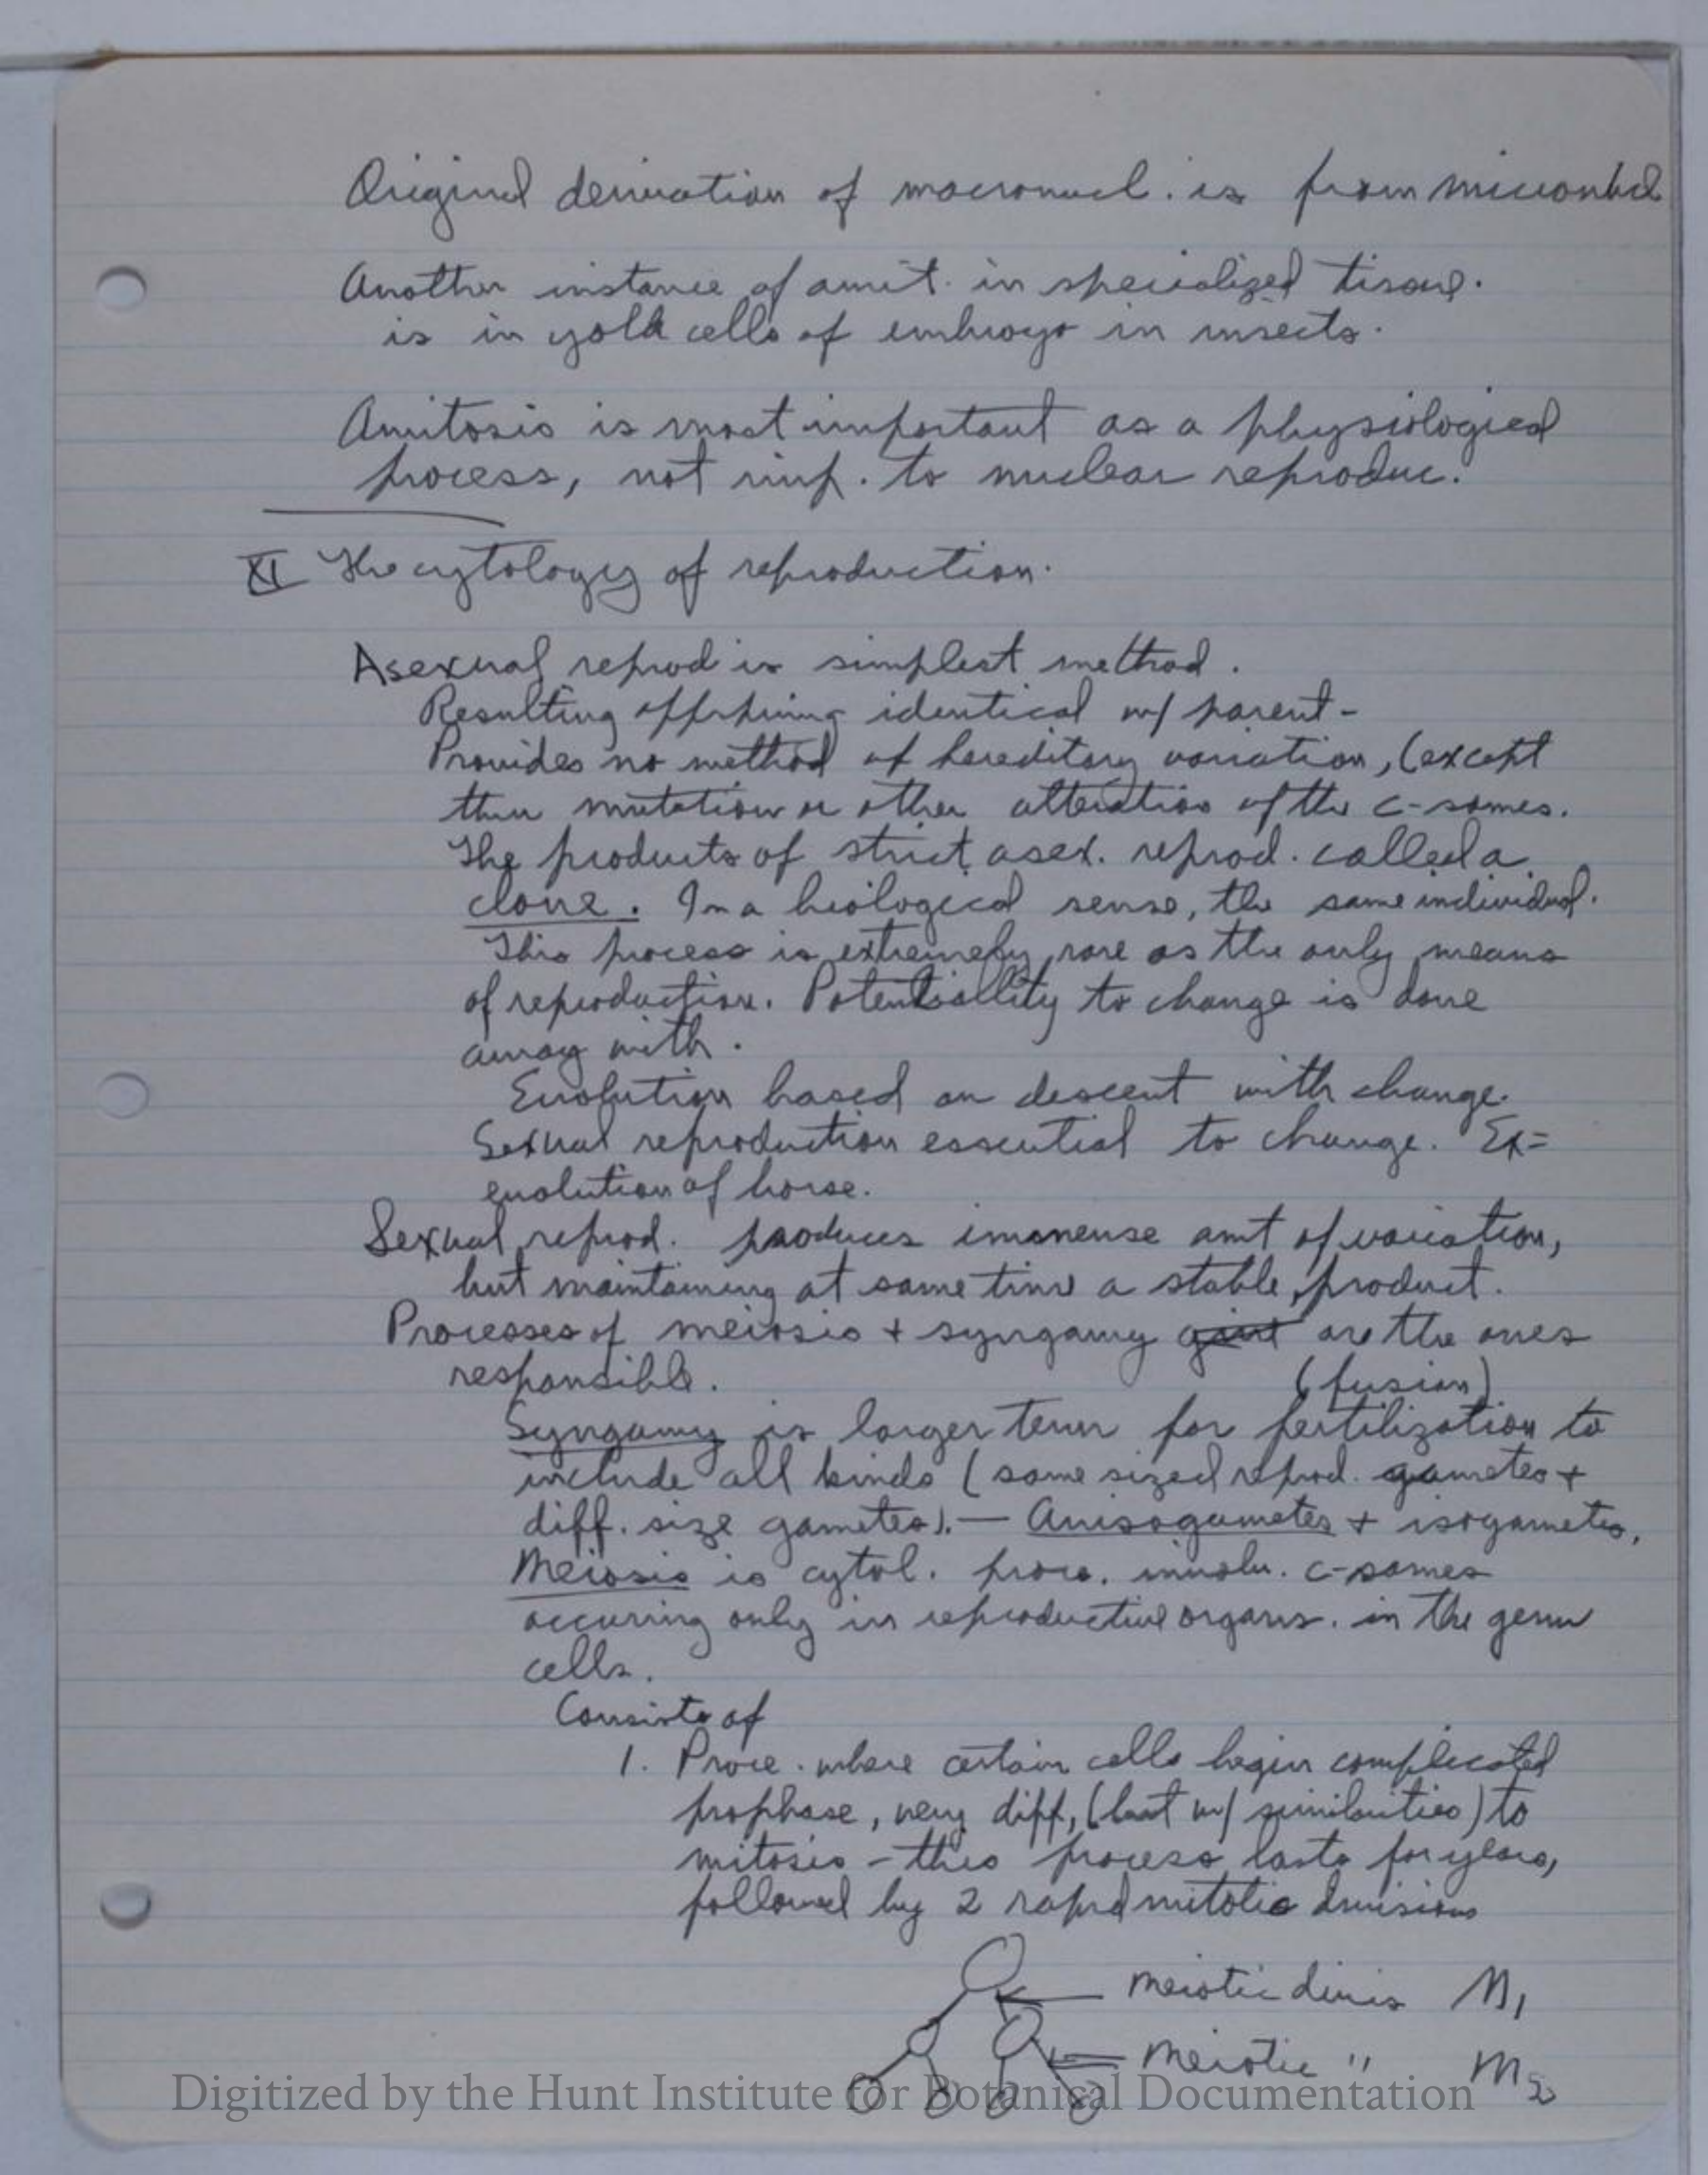 Original derivation of macronucl. is from micronucl
Another instance of amit. in specialized tissue.
is in yolk cells of embryo in insects.
Amitosis is most important as a physiological
process, not imp. to nuclear reproduc.
XI The cytology of reproduction.
Asexual reprod is simplest method.
Resulting offspring identical w/ parent-
Provides no method of hereditary variation, (except
thru mutation or other alteration of the c-somes.
The products of strict asex. reprod. called a
clone. In a biological sense, the same individual.
This process is extremely rare as the only means
of reproduction. Potentiallity to change is done
away with.
Evolution based on descent with change.
Sexual reproduction essential to change. Ex=
evolution of horse.
Sexual reprod. produces immense amt of variation,
but maintaining at same time a stable product.
Processes of meiosis + syngamy are the ones
responsible.
(fusion)
Syngamy is larger term for fertilization to
include all kinds (same sized reprod. gametes +
diff. size gametes). — Anisogametes + isogametes.
Meiosis is cytol. proc. involv. c-somes
occuring only in reproductive organs. in the germ
cells.
Consists of
1. Proce. where certain cells begin complicated
prophase, very diff, (but w/ similarities) to
mitosis - this process lasts for years,
followed by 2 rapid mitotic divisions
meiotic divis M1
meiotic " M2
Digitized by the Hunt Institute for Botanical Documentation